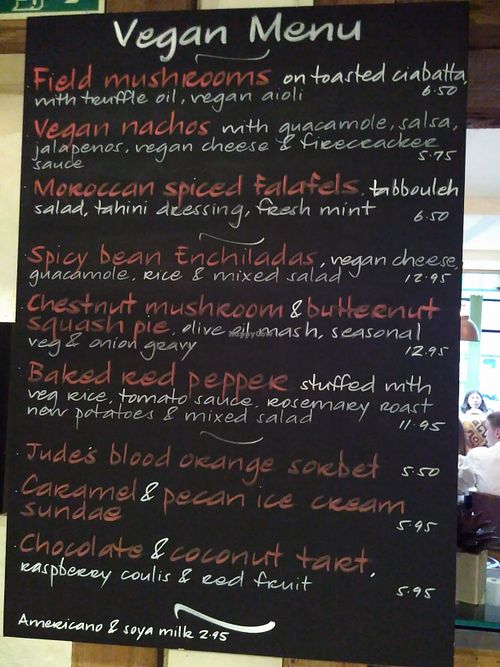 Vegan Menu
Field mushrooms on toasted ciabatta,
with truffle oil, vegan aioli 6.50
Vegan nachos with guacamole, salsa,
jalapenos, vegan cheese & firecracker
sauce 5.75
Moroccan spiced falafels, tabbouleh
salad, tahini dressing, fresh mint 6.50
Spicy bean Enchiladas, vegan cheese,
guacamole, rice & mixed salad 12.95
Chestnut mushroom & butternut
squash pie, olive oil mash, seasonal
veg & onion gravy 12.95
Baked red pepper stuffed with
veg rice, tomato sauce, rosemary roast
new potatoes & mixed salad 11.95
Jude's blood orange sorbet 5.50
Caramel & pecan ice cream
sundae 5.95
Chocolate & coconut tart,
raspberry coulis & red fruit 5.95
Americano & soya milk 2.95